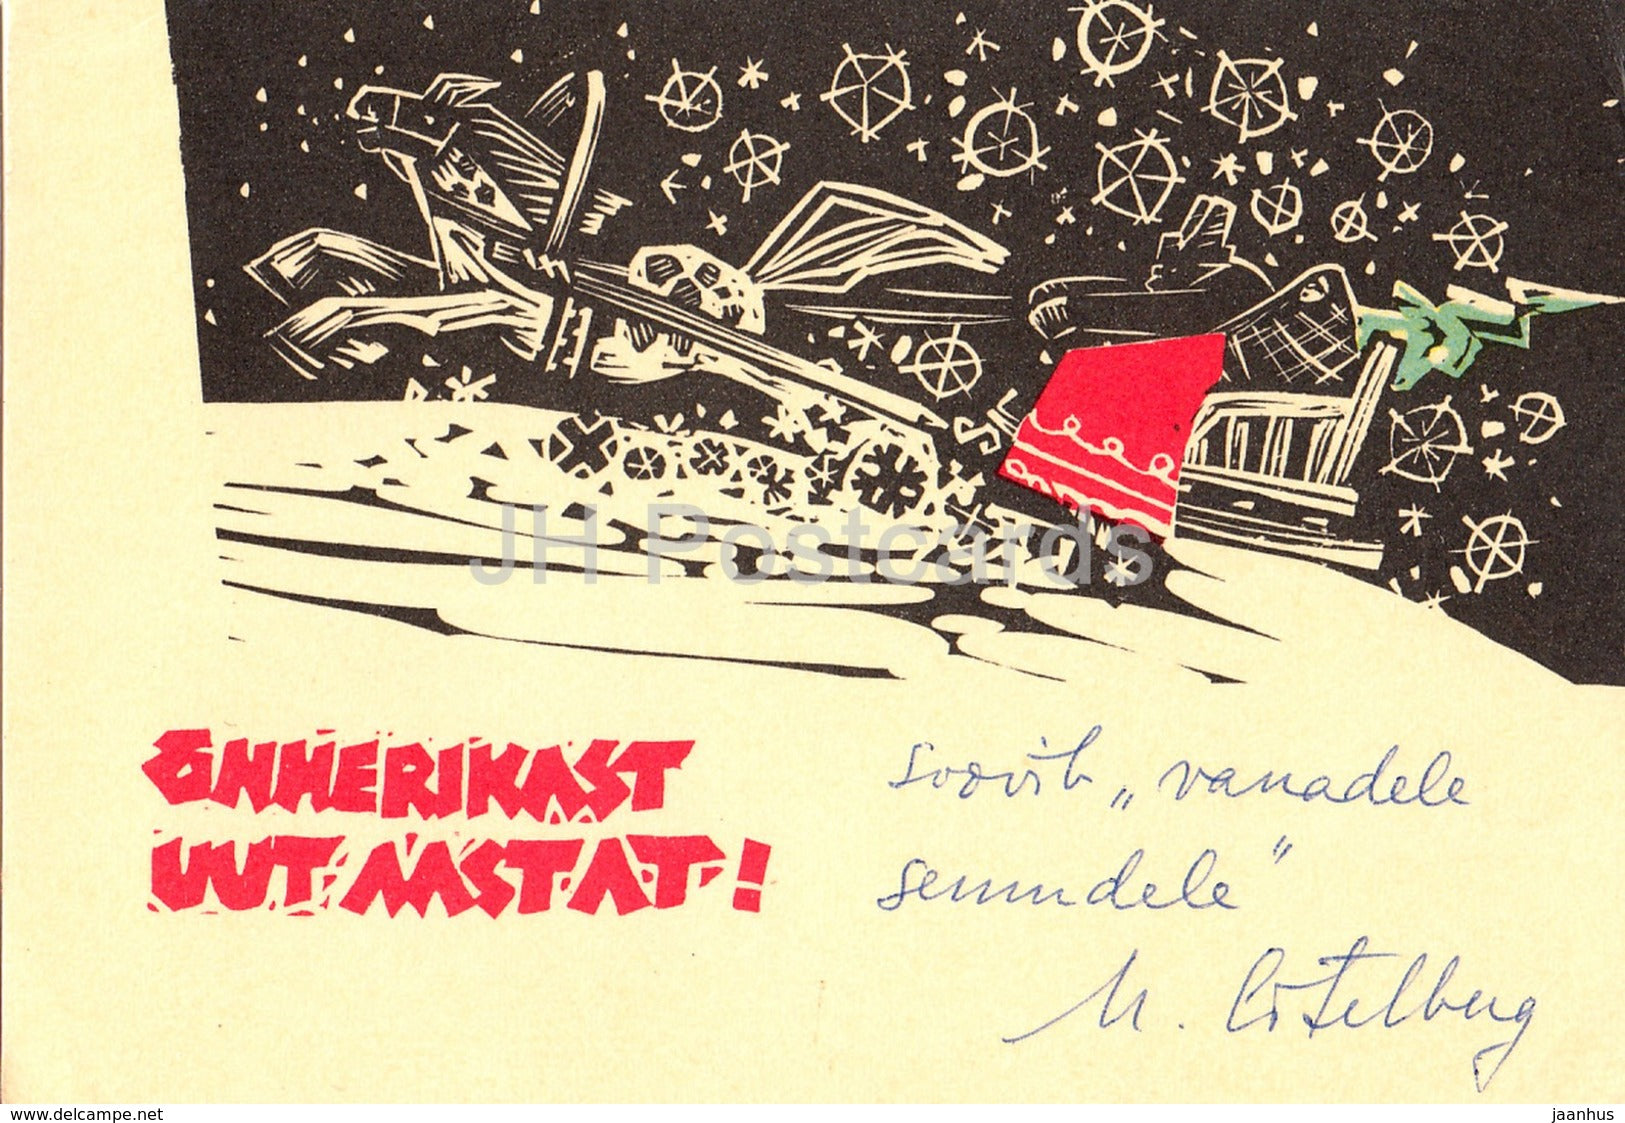 JH Postcards
ÕNNERIKAST
UUT AASTAT!
soovib „vanadele
semudele"
www.delcampe.net
jaanhus